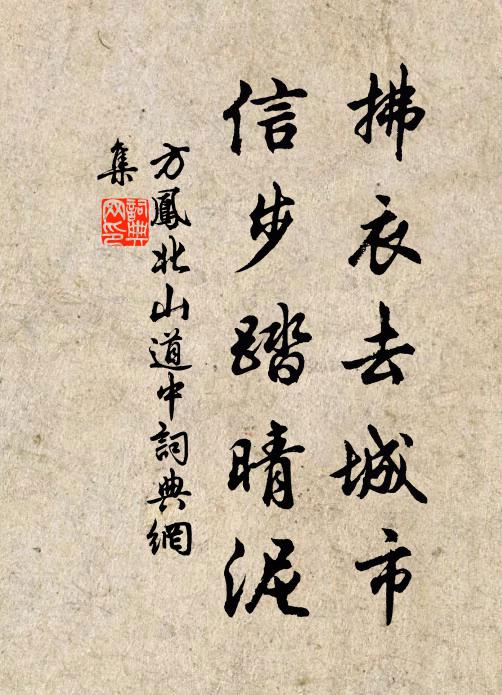 拂衣去城市
信步踏晴泥
方鳳北山道中詞典網
集
詞典
网印